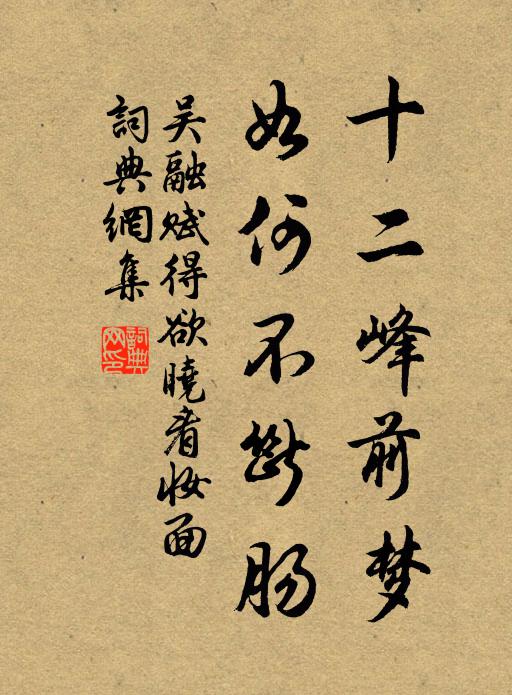 十二峰前梦
如何不断肠
吴融赋得欲晓看妆面
詞典網集
詞典网印